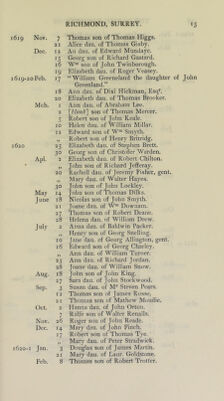 RICHMOND, SURREY. 15
1619 Nov. 7 Thomas son of Thomas Higgs.
21 Alice dau. of Thomas Gisby.
Dec. 12 An dau. of Edward Mundaye.
15 Georg son of Richard Gastard.
16 Wm son of John Twinborough.
19 Elizabeth dau. of Roger Veasey.
1619-20 Feb. 17 "William Greeneland the daughter of John
Greenland."
18 Ann dau. of Dial Hickman, Esqr.
20 Elizabeth dau. of Thomas Brooker.
Mch. 1 Ann dau. of Abraham Lee.
2 [blank] son of Thomas Mercer.
5 Robert son of John Keale.
10 Helen dau. of William Millar.
12 Edward son of Wm Smyth.
„ Robert son of Henry Britridg.
1620 25 Elizabeth dau. of Stephen Brett.
„ Georg son of Christofer Warden.
Apl. 2 Elizabeth dau. of Robert Chilton.
„ John son of Richard Jefferay.
20 Rachell dau. of Jeremy Fisher, gent.
„ Mary dau. of Walter Hayes.
30 John son of John Lockley.
May 14 John son of Thomas Dilks.
June 18 Nicolas son of John Smyth.
21 Joane dau. of Wm Downam.
27 Thomas son of Robert Deane.
28 Helena dau. of William Drew.
July 2 Anna dau. of Baldwin Packer.
„ Henry son of Georg Snelling.
10 Jane dau. of Georg Allington, gent.
16 Edward son of Georg Charley.
„ Ann dau. of William Turner.
23 Ann dau. of Richard Jordan.
28 Joane dau. of William Stave.
Aug. 18 John son of John King.
27 Sara dau. of John Stockwood.
Sep. 3 Susan dau. of Mr Steven Pours.
12 Thomas son of James Rosse.
21 Thomas son of Mathew Moudie.
Oct. 2 Henra dau. of John Orton.
7 Ralfe son of Walter Renalls.
Nov. 26 Roger son of John Reade.
Dec. 14 Mary dau. of John Finch.
17 Robert son of Thomas Tye.
„ Mary dau. of Peter Stradwick.
1620-1 Jan. 3 Douglas son of James Martin.
21 Mary dau. of Laur. Goldstone.
Feb. 8 Thomas son of Robert Trotter.